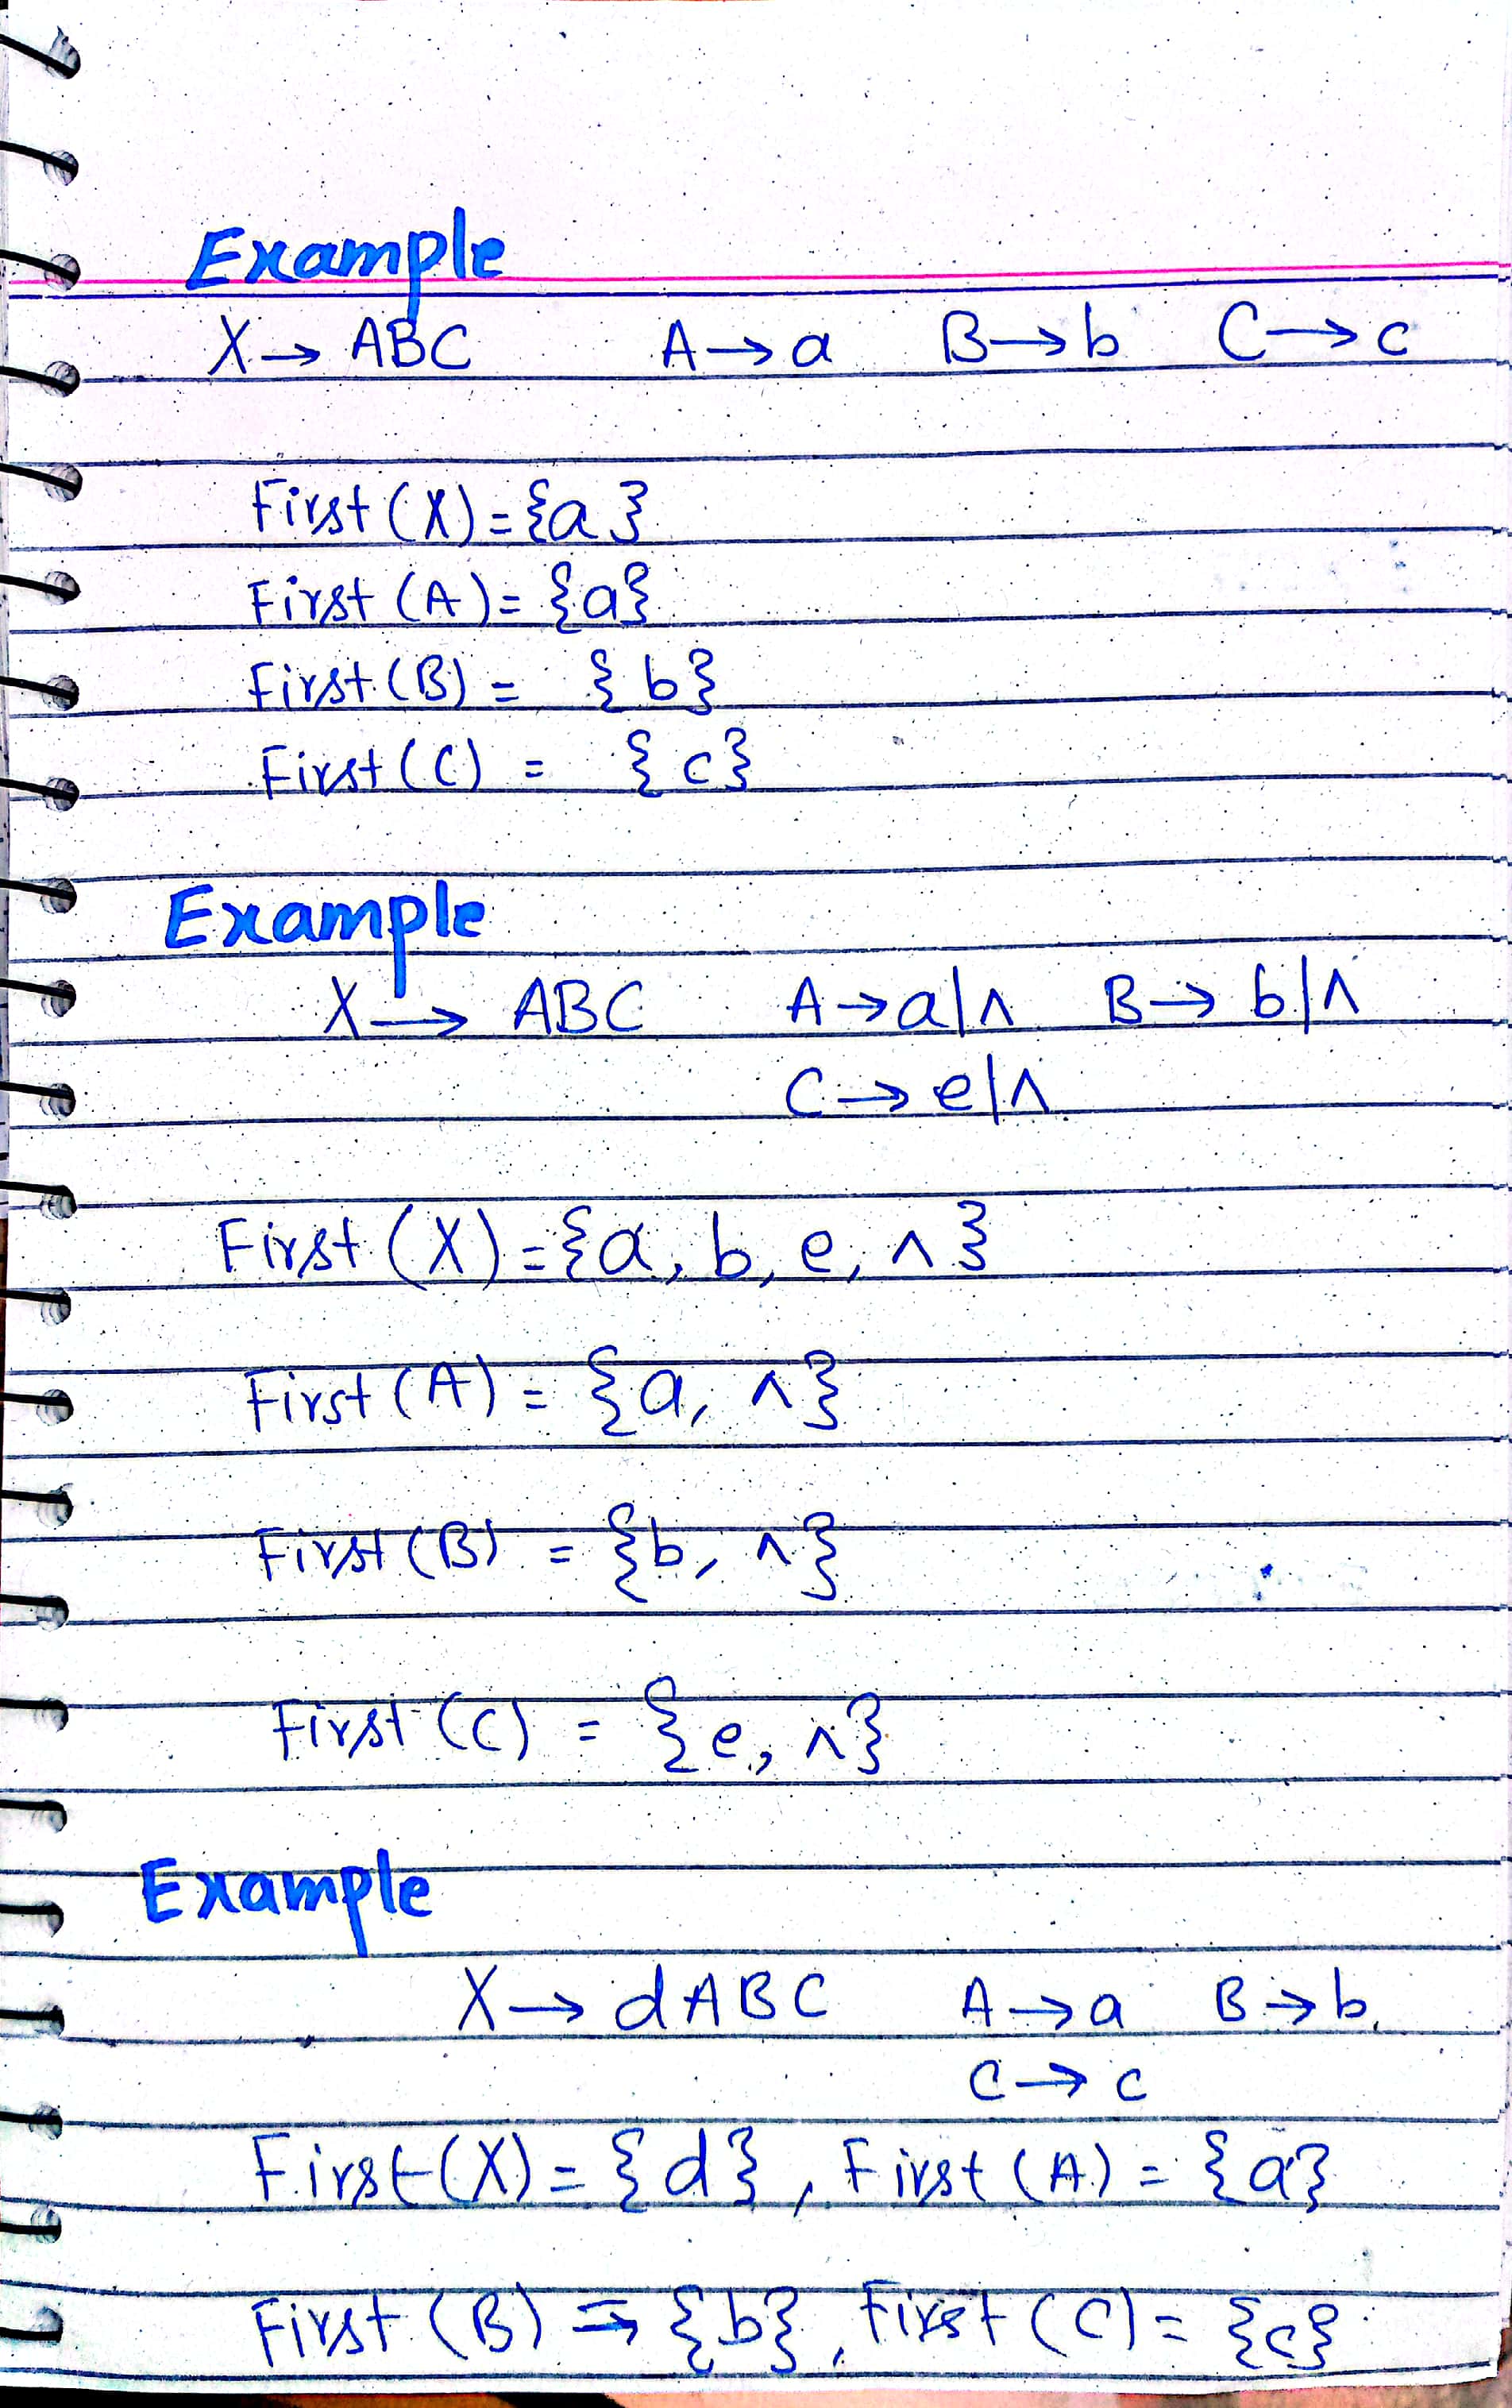 Example
X → ABC A → a B → b C → c
First (X) = {a}
First (A) = {a}
First (B) = {b}
First (C) = {c}
Example
X → ABC A → a|^ B → b|^
C → e|^
First (X) = {a, b, e, ^}
First (A) = {a, ^}
First (B) = {b, ^}
First (C) = {e, ^}
Example
X → dABC A → a B → b
C → c
First (X) = {d}, First (A) = {a}
First (B) = {b}, First (C) = {c}